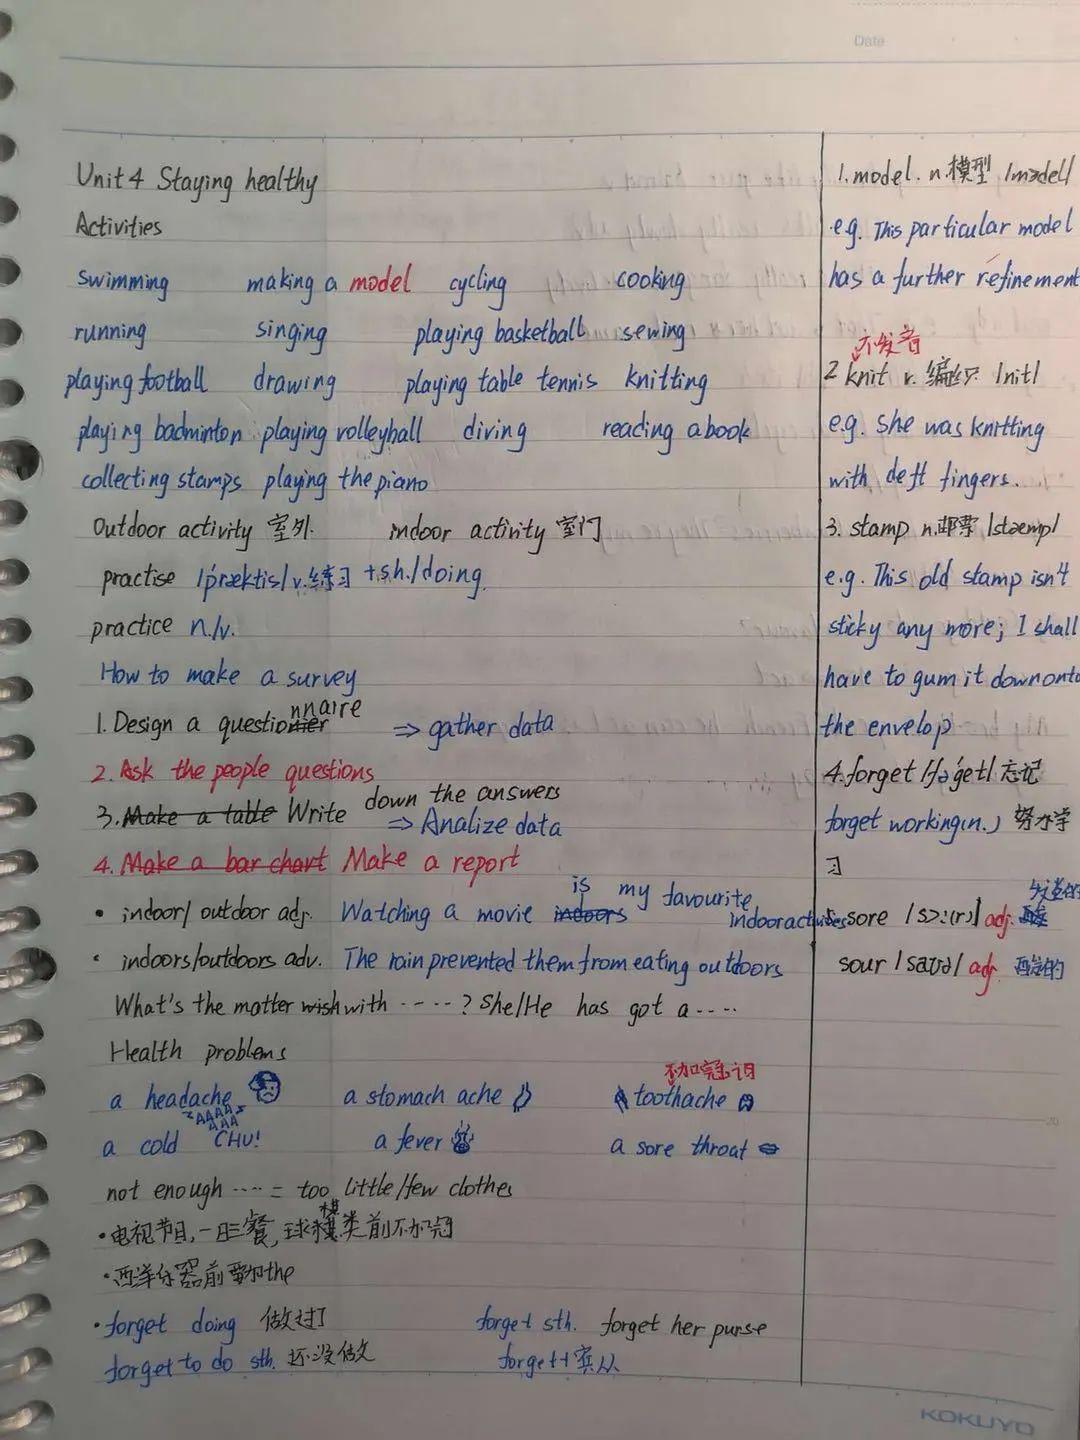 Date
Unit 4 Staying healthy
Activities
swimming making a model cycling cooking
running singing playing basketball sewing
playing football drawing playing table tennis knitting
playing badminton playing volleyball diving reading a book
collecting stamps playing the piano
Outdoor activity 室外. indoor activity 室门
practise /'præktis/ v.练习 +sh./doing.
practice n./v.
How to make a survey
1. Design a questionnaire ⇒ gather data
2. Ask the people questions
down the answers
3. Make a table Write ⇒ Analize data
4. Make a bar chart Make a report
is my favourite
• indoor/outdoor adj. Watching a movie indoors indoor activities
• indoors/outdoors adv. The rain prevented them from eating outdoors
What's the matter wish with ‧‧‧‧‧? She/He has got a ‧‧‧‧
Health problems
不加冠词
a headache a stomach ache toothache
AAAA
AAA
a cold CHU! a fever a sore throat
not enough ‧‧‧‧ = too little/few clothes
•电视节目,一日三餐,球棋类前不加冠
•西洋乐器前要加the
• forget doing 做过了 forget sth. forget her purse
forget to do sth. 还没做 forget+宾从
1. model. n.模型 /mɔdel/
e.g. This particular model
has a further refinement
不发音
2 knit v. 编织 /nit/
e.g. She was knitting
with deft fingers.
3. stamp n.邮票 /stæmp/
e.g. This old stamp isn't
sticky any more; I shall
have to gum it down onto
the envelop
4. forget /fə'get/ 忘记
forget working(n.) 努力学
习
5. sore /sɔ:(r)/ adj.
sour /saʊə/ adj. 酸的
KOKUYO